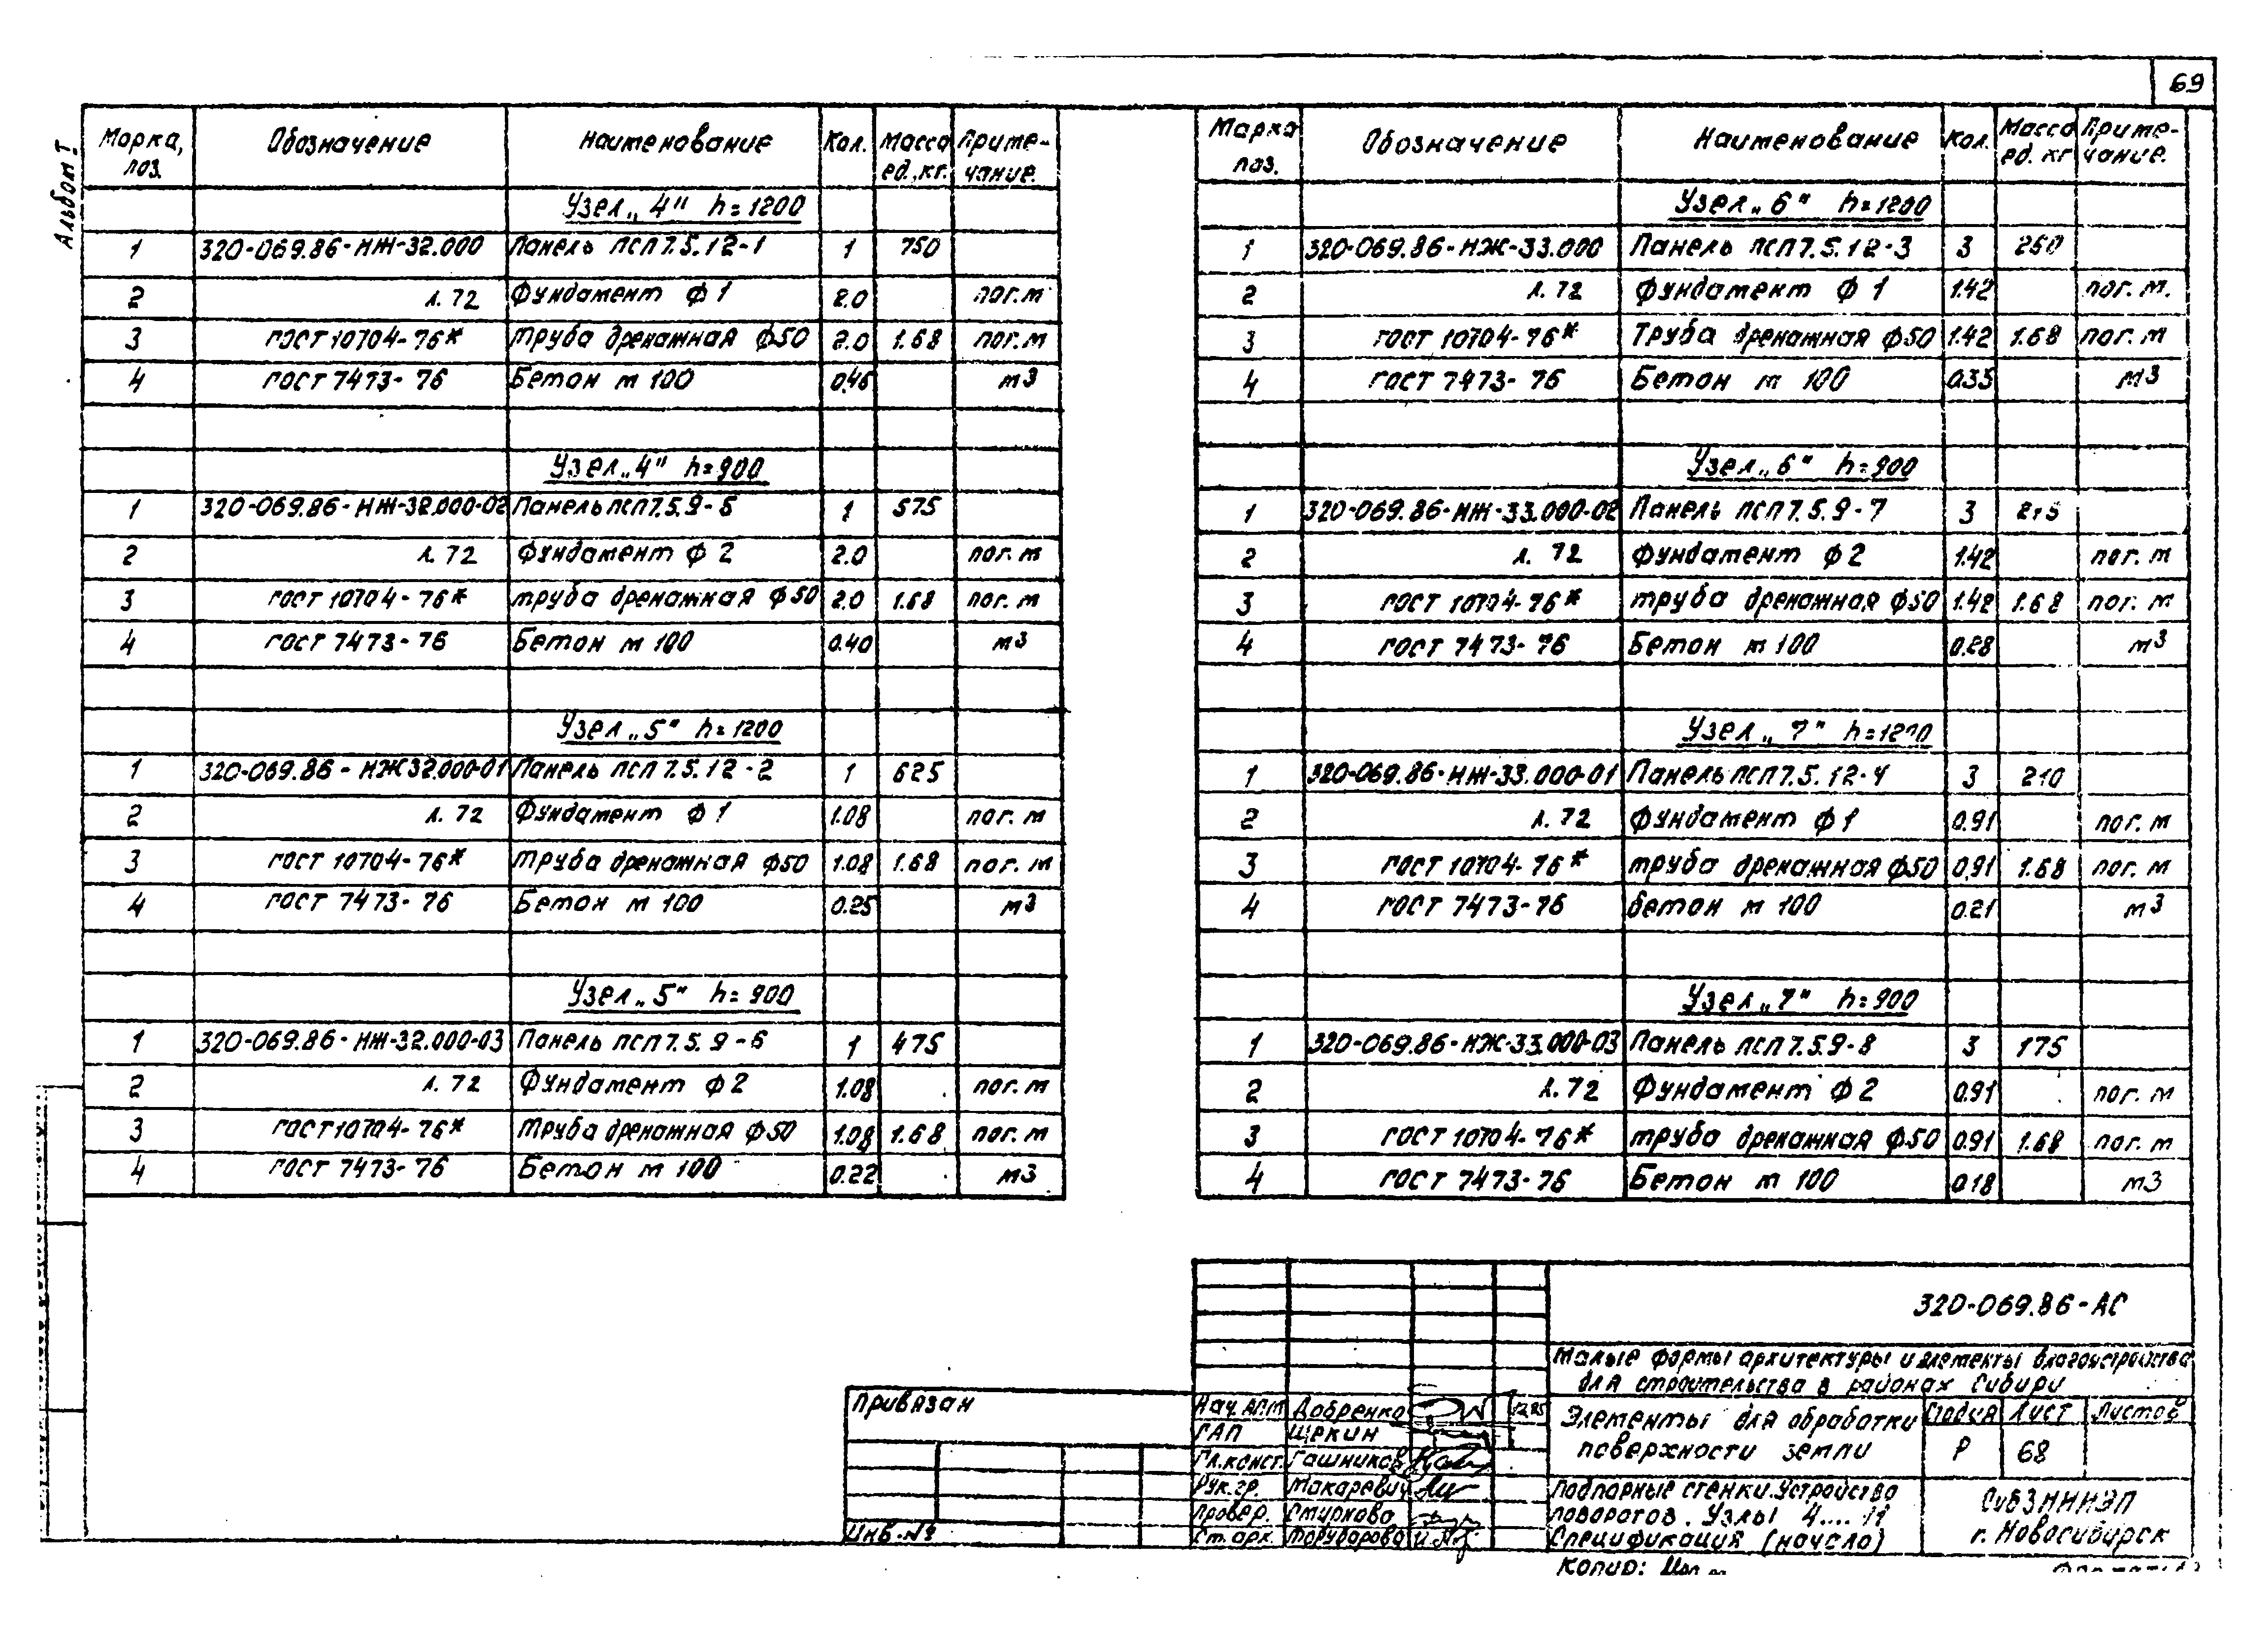 69
Альбом I
Марка, поз. Обозначение Наименование Кол. Масса ед., кг. Примечание.
Узел „4" h=1200
1 320-069.86-КЖ-32.000 Панель ПСП 7.5.12-1 1 750
2 л. 72 Фундамент Ф 1 2.0 пог.м
3 ГОСТ 10704-76* Труба дренажная ф50 2.0 1.68 пог.м
4 ГОСТ 7473-76 Бетон м 100 0.46 м3
Узел „4" h=900
1 320-069.86-КЖ-32.000-02 Панель ПСП 7.5.9-5 1 575
2 л. 72 Фундамент ф 2 2.0 пог. м
3 ГОСТ 10704-76* труба дренажная ф50 2.0 1.68 пог. м
4 ГОСТ 7473-76 Бетон м 100 0.40 м3
Узел „5" h=1200
1 320-069.86-КЖ32.000-01 Панель ПСП 7.5.12-2 1 625
2 л. 72 Фундамент ф 1 1.08 пог. м
3 ГОСТ 10704-76* труба дренажная ф50 1.08 1.68 пог. м
4 ГОСТ 7473-76 Бетон м 100 0.25 м3
Узел „5" h=900
1 320-069.86-КЖ-32.000-03 Панель ПСП 7.5.9-6 1 475
2 л. 72 Фундамент ф 2 1.08 пог. м
3 ГОСТ 10704-76* Труба дренажная ф50 1.08 1.68 пог. м
4 ГОСТ 7473-76 Бетон м 100 0.22 м3
Марка поз. Обозначение Наименование Кол. Масса ед. кг Примечание.
Узел „6" h=1200
1 320-069.86-КЖ-33.000 Панель ПСП 7.5.12-3 3 250
2 л. 72 Фундамент ф 1 1.42 пог. м.
3 ГОСТ 10704-76* Труба дренажная ф50 1.42 1.68 пог. м
4 ГОСТ 7473-76 Бетон м 100 0.35 м3
Узел „6" h=900
1 320-069.86-КЖ-33.000-02 Панель ПСП 7.5.9-7 3
2 л. 72 Фундамент ф 2 1.42 пог. м
3 ГОСТ 10704-76* труба дренажная ф50 1.42 1.68 пог. м
4 ГОСТ 7473-76 Бетон м 100 0.28 м3
Узел „7" h=1200
1 320-069.86-КЖ-33.000-01 Панель ПСП 7.5.12-4 3 210
2 л. 72 Фундамент ф 1 0.91 пог. м
3 ГОСТ 10704-76* труба дренажная ф50 0.91 1.68 пог. м
4 ГОСТ 7473-76 бетон м 100 0.21 м3
Узел „7" h=900
1 320-069.86-КЖ-33.000-03 Панель ПСП 7.5.9-8 3 175
2 л. 72 Фундамент ф 2 0.91 пог. м
3 ГОСТ 10704-76* труба дренажная ф50 0.91 1.68 пог. м
4 ГОСТ 7473-76 Бетон м 100 0.18 м3
320-069.86-АС
Малые формы архитектуры и элементы благоустройства
для строительства в районах Сибири
Привязан
Инв.№
Нач. АПМ Добренко 12.85
ГАП Щекин
Гл.конст. Гашников
Рук.гр. Макаревич
Провер. Смирнова
Ст.арх. Торубарова
Элементы для обработки
поверхности земли
Стадия Лист Листов
Р 68
Подпорные стенки. Устройство
поворотов. Узлы 4.... 11
Спецификация (начало)
СибЗНИИЭП
г. Новосибирск
Копир: